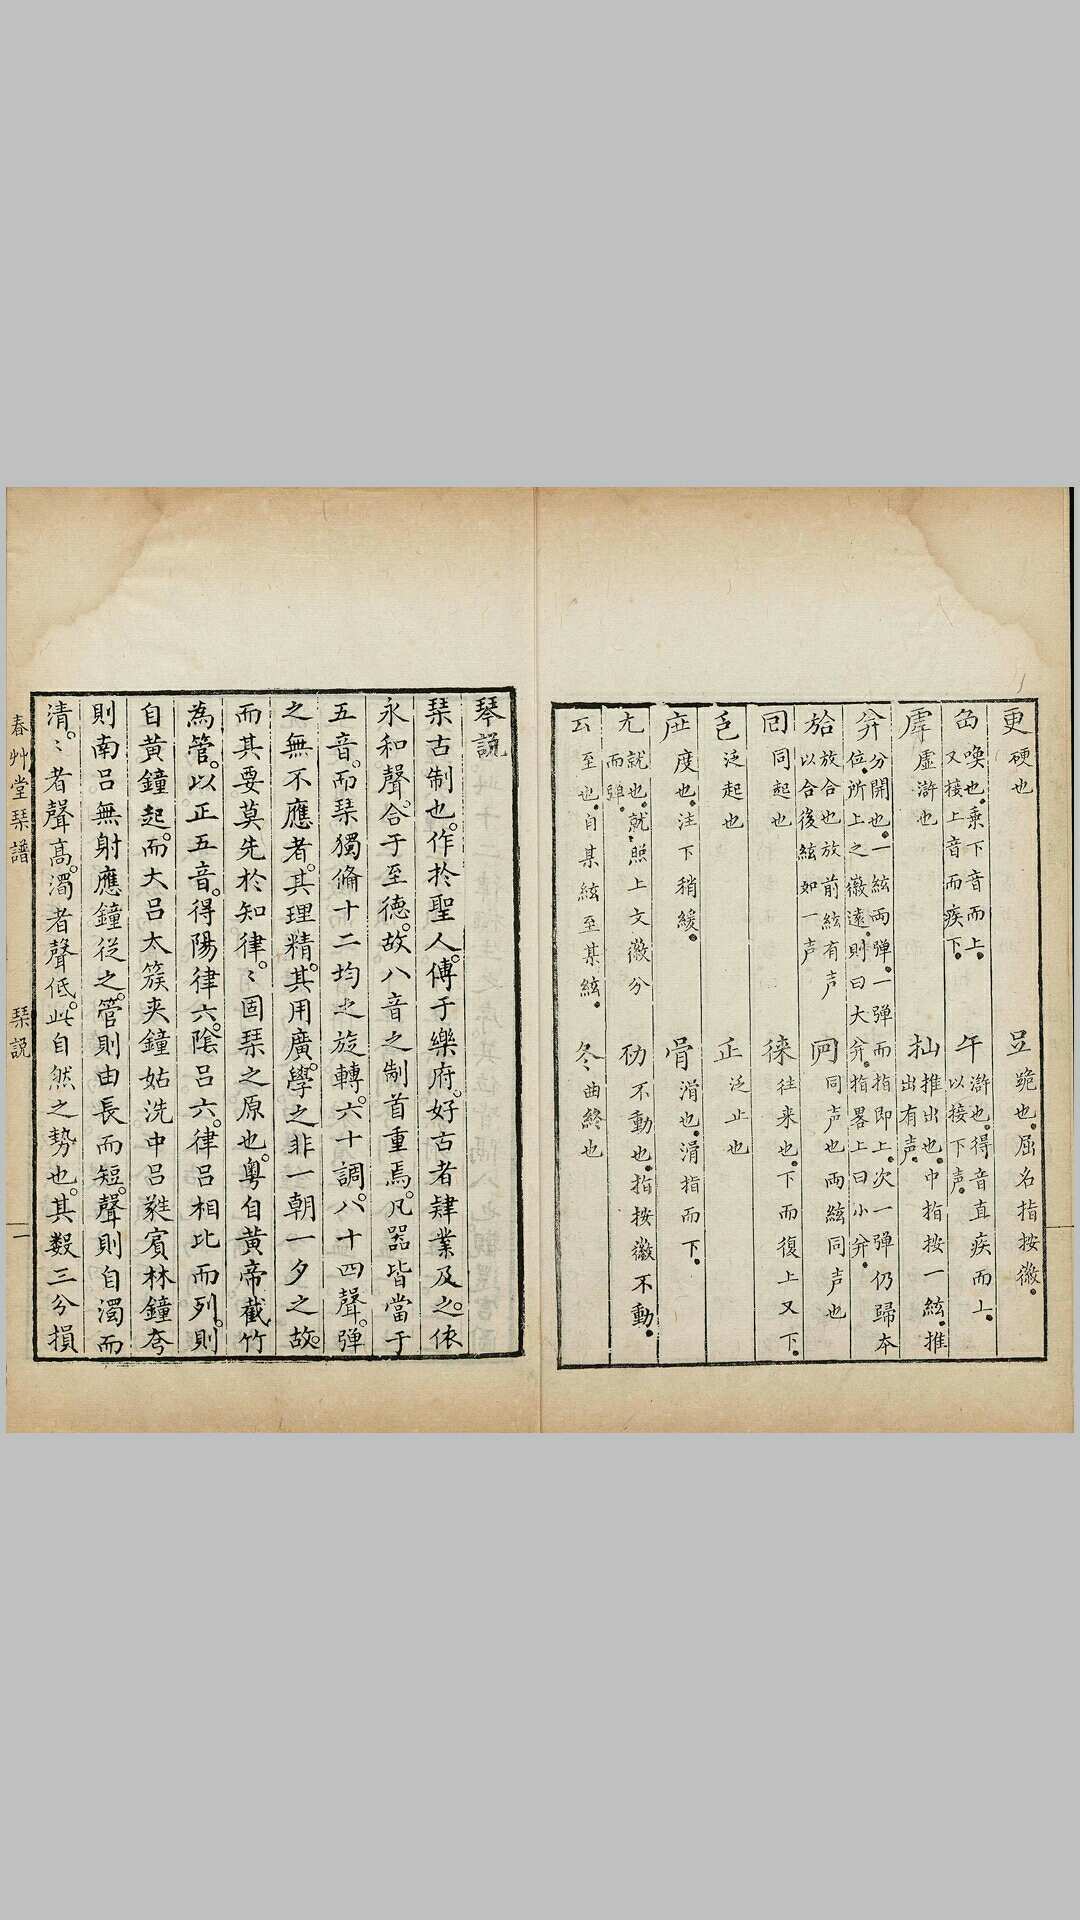 更 硬也
𧿁 跪也。屈名指按徽。
喚也。乗下音而上。
又接上音而疾下。
午 滸也。得音直疾而上。
以接下声。
虚滸也
推出也。中指按一絃。推
出有声。
分開也。一絃两弹。一弹而指即上。次一弹仍歸本
位。所上之徽遠。則曰大𠔥。指畧上曰小𠔥。
放合也放前絃有声
以合後絃如一声
同声也两絃同声也
同起也
徕 往来也。下而復上又下。
泛起也
正 泛止也
度也。注下稍緩。
骨 滑也。滑指而下。
就也。就照上文徽分
而弹。
不動也。指按徽不動。
至也。自某絃至某絃。
冬 曲終也
琴說
琹古制也。作扵聖人。傅于樂府。好古者肄業及之。依
永和聲。合于至德。故八音之制首重焉。凡噐皆當于
五音。而琹獨俻十二均之旋轉。六十調。八十四聲。弹
之無不應者。其理精。其用廣。學之非一朝一夕之故。
而其要莫先於知律。〻固琹之原也。粤自黄帝截竹
為管。以正五音。得陽律六。陰吕六。律吕相比而列。則
自黄鐘起。而大吕太簇夾鐘姑洗中吕蕤賓林鐘夸
則南吕無射應鐘従之。管則由長而短。聲則自濁而
清。〻者聲高。濁者聲低。此自然之勢也。其数三分損
春艸堂琹譜 琹說 一